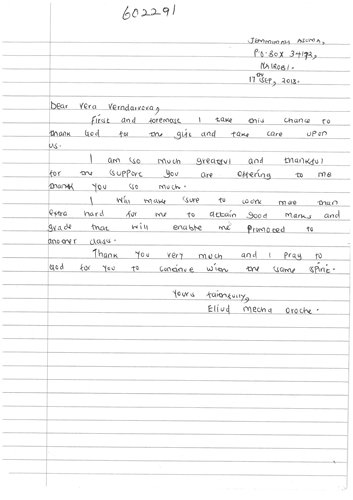 602291
P.O. BOX 34192,
NAIROBI.
17th SEP, 2013.
Dear Vera
First and foremost I take this chance to
thank God for the gift and take care upon
us.
I am so much greatful and thankful
for the support you are offering to me
thank you so much.
I will make sure to work more than
extra hard for me to attain good marks and
grade that will enable me promoted to
another class.
Thank you very much and I pray to
God for you to continue with the same spirit.
Yours faithfully,
Eliud Mecha Oroche.